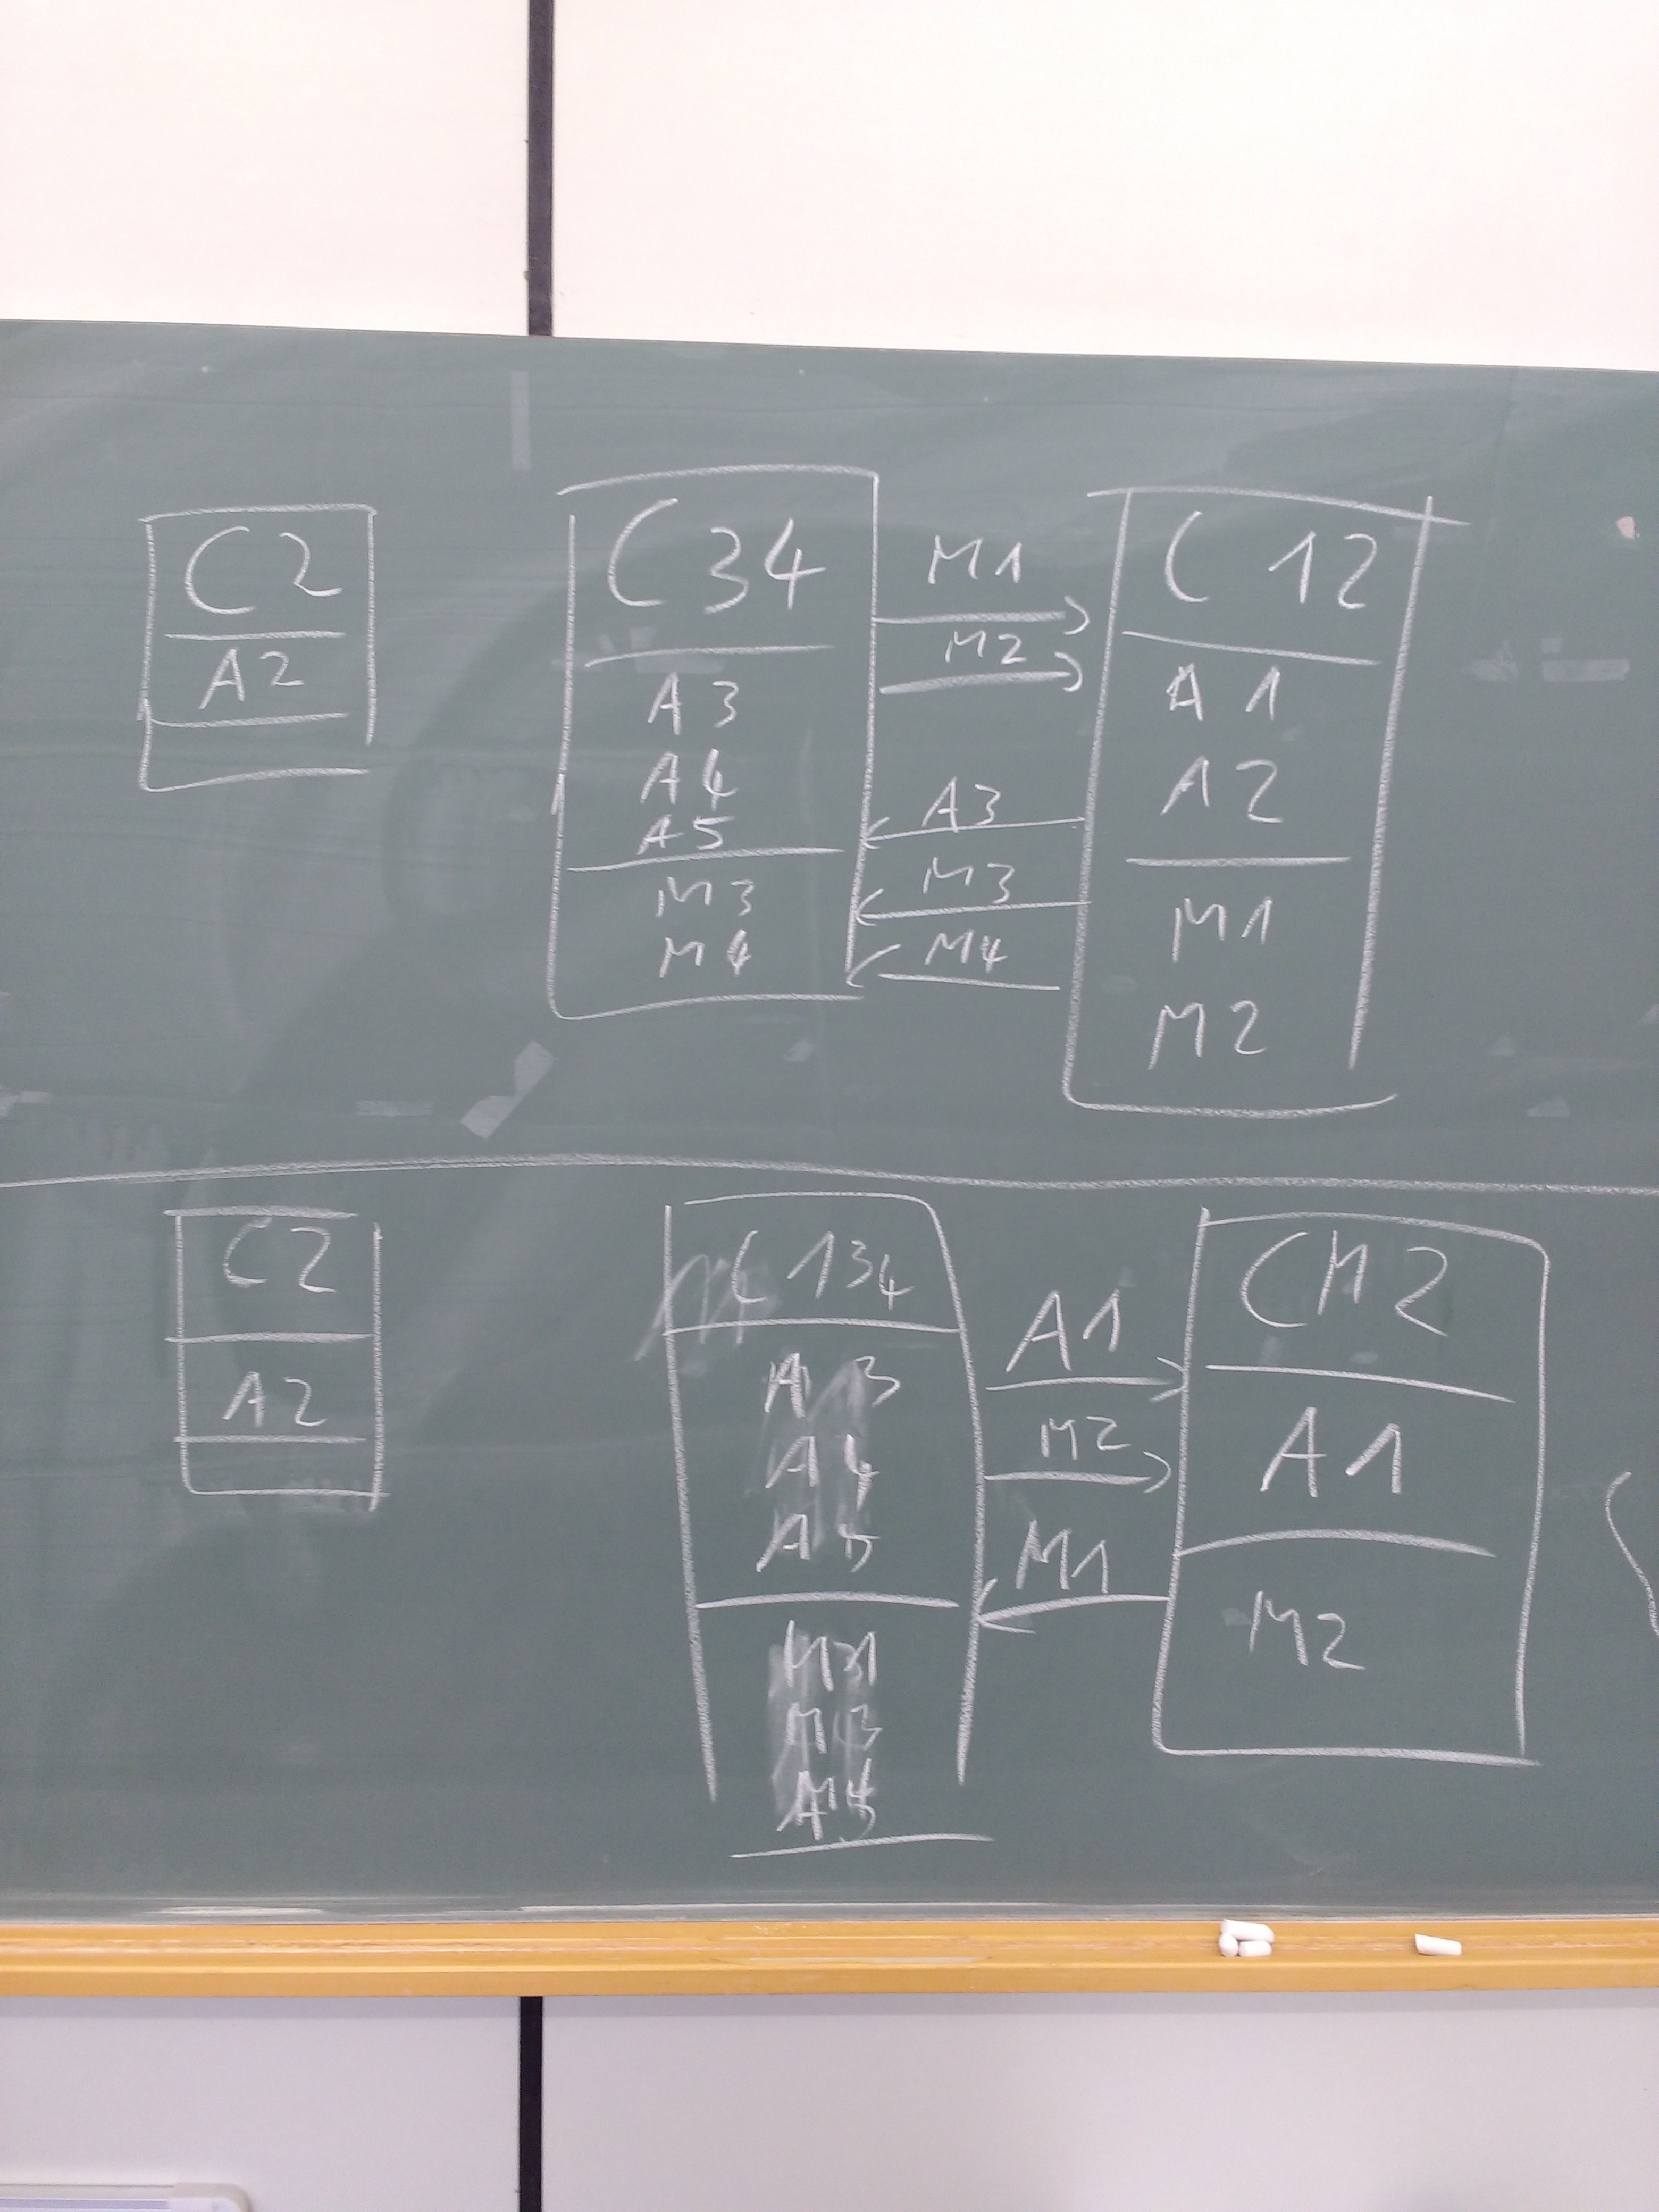 C2
A2
C34
A3
A4
A5
M3
M4
M1
M2
A3
M3
M4
C12
A1
A2
M1
M2
C2
A2
C134
A3
A4
A5
M1
M3
M4
A1
M2
M1
A1
M2